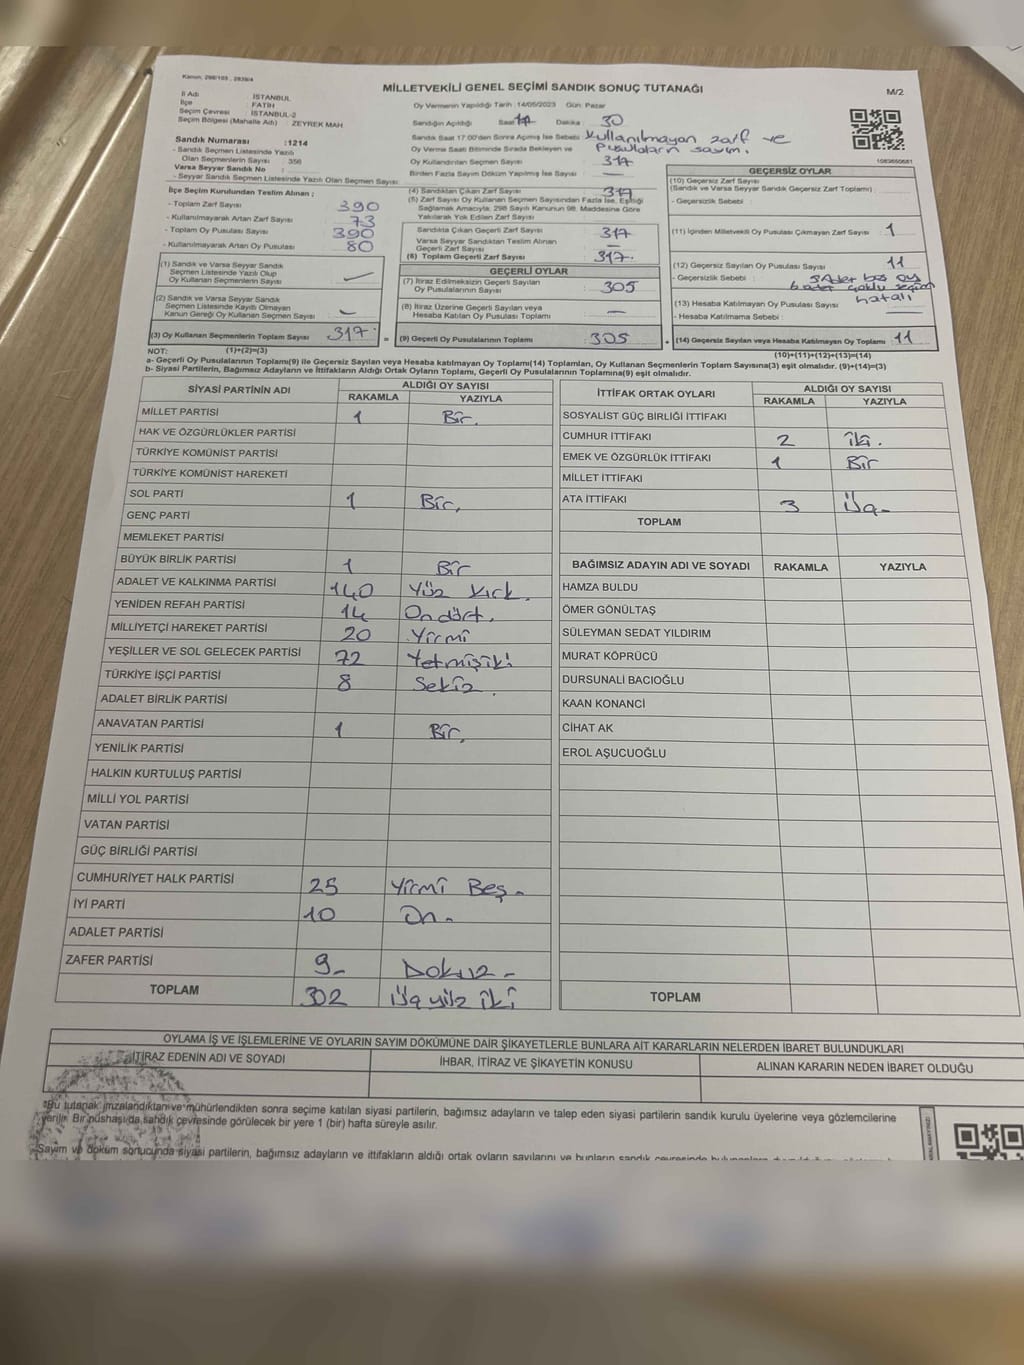 Kanun: 298/105 , 2839/4
MİLLETVEKİLİ GENEL SEÇİMİ SANDIK SONUÇ TUTANAĞI
M/2
İl Adı : İSTANBUL
İlçe : FATİH
Seçim Çevresi : İSTANBUL-2
Seçim Bölgesi (Mahalle Adı) : ZEYREK MAH
Oy Vermenin Yapıldığı Tarih :14/05/2023 Gün: Pazar
Sandığın Açıldığı Saat: 17 Dakika : 30
Sandık Saat 17:00'den Sonra Açılmış İse Sebebi : Kullanılmayan zarf ve
Oy Verme Saati Bitiminde Sırada Bekleyen ve pusulaların sayım.
Oy Kullandırılan Seçmen Sayısı : 317
Birden Fazla Sayım Döküm Yapılmış İse Sayısı : —
1083650681
Sandık Numarası :1214
- Sandık Seçmen Listesinde Yazılı
Olan Seçmenlerin Sayısı : 356
Varsa Seyyar Sandık No :
- Seyyar Sandık Seçmen Listesinde Yazılı Olan Seçmen Sayısı:
İlçe Seçim Kurulundan Teslim Alınan ;
- Toplam Zarf Sayısı : 390
- Kullanılmayarak Artan Zarf Sayısı : 73
- Toplam Oy Pusulası Sayısı : 390
- Kullanılmayarak Artan Oy Pusulası : 80
(1) Sandık ve Varsa Seyyar Sandık
Seçmen Listesinde Yazılı Olup
Oy Kullanan Seçmenlerin Sayısı : —
(2) Sandık ve Varsa Seyyar Sandık
Seçmen Listesinde Kayıtlı Olmayan
Kanun Gereği Oy Kullanan Seçmen Sayısı : —
(3) Oy Kullanan Seçmenlerin Toplam Sayısı : 317
(1)+(2)=(3)
(4) Sandıktan Çıkan Zarf Sayısı : 317
(5) Zarf Sayısı Oy Kullanan Seçmen Sayısından Fazla İse, Eşitliği
Sağlamak Amacıyla, 298 Sayılı Kanunun 98. Maddesine Göre
Yakılarak Yok Edilen Zarf Sayısı :
Sandıkta Çıkan Geçerli Zarf Sayısı : 317
Varsa Seyyar Sandıktan Teslim Alınan
Geçerli Zarf Sayısı : —
(6) Toplam Geçerli Zarf Sayısı : 317.
GEÇERLİ OYLAR
(7) İtiraz Edilmeksizin Geçerli Sayılan
Oy Pusulalarının Sayısı : 305
(8) İtiraz Üzerine Geçerli Sayılan veya
Hesaba Katılan Oy Pusulası Toplamı : —
= (9) Geçerli Oy Pusulalarının Toplamı : 305
GEÇERSİZ OYLAR
(10) Geçersiz Zarf Sayısı
(Sandık ve Varsa Seyyar Sandık Geçersiz Zarf Toplamı) :
- Geçersizlik Sebebi :
(11) İçinden Milletvekili Oy Pusulası Çıkmayan Zarf Sayısı : 1
(12) Geçersiz Sayılan Oy Pusulası Sayısı : 11
- Geçersizlik Sebebi : 5 Adet boş oy
çoklu seçim
hatalı
(13) Hesaba Katılmayan Oy Pusulası Sayısı : —
- Hesaba Katılmama Sebebi :
+ (14) Geçersiz Sayılan veya Hesaba Katılmayan Oy Toplamı : 11
(10)+(11)+(12)+(13)=(14)
NOT:
a- Geçerli Oy Pusulalarının Toplamı(9) ile Geçersiz Sayılan veya Hesaba katılmayan Oy Toplamı(14) Toplamları, Oy Kullanan Seçmenlerin Toplam Sayısına(3) eşit olmalıdır. (9)+(14)=(3)
b- Siyasi Partilerin, Bağımsız Adayların ve İttifakların Aldığı Ortak Oyların Toplamı, Geçerli Oy Pusulalarının Toplamına(9) eşit olmalıdır.
SİYASİ PARTİNİN ADI
ALDIĞI OY SAYISI
RAKAMLA YAZIYLA
MİLLET PARTİSİ 1 Bir.
HAK VE ÖZGÜRLÜKLER PARTİSİ
TÜRKİYE KOMÜNİST PARTİSİ
TÜRKİYE KOMÜNİST HAREKETİ
SOL PARTİ 1 Bir.
GENÇ PARTİ
MEMLEKET PARTİSİ
BÜYÜK BİRLİK PARTİSİ 1 Bir
ADALET VE KALKINMA PARTİSİ 140 Yüz kırk.
YENİDEN REFAH PARTİSİ 14 On dört.
MİLLİYETÇİ HAREKET PARTİSİ 20 Yirmi
YEŞİLLER VE SOL GELECEK PARTİSİ 72 Yetmişiki
TÜRKİYE İŞÇİ PARTİSİ 8 Sekiz.
ADALET BİRLİK PARTİSİ
ANAVATAN PARTİSİ 1 Bir.
YENİLİK PARTİSİ
HALKIN KURTULUŞ PARTİSİ
MİLLİ YOL PARTİSİ
VATAN PARTİSİ
GÜÇ BİRLİĞİ PARTİSİ
CUMHURİYET HALK PARTİSİ 25 Yirmi Beş.
İYİ PARTİ 10 On.
ADALET PARTİSİ
ZAFER PARTİSİ 9 Dokuz.
TOPLAM 302 Üç yüz iki
İTTİFAK ORTAK OYLARI
ALDIĞI OY SAYISI
RAKAMLA YAZIYLA
SOSYALİST GÜÇ BİRLİĞİ İTTİFAKI
CUMHUR İTTİFAKI 2 iki.
EMEK VE ÖZGÜRLÜK İTTİFAKI 1 Bir
MİLLET İTTİFAKI
ATA İTTİFAKI 3 Üç
TOPLAM
BAĞIMSIZ ADAYIN ADI VE SOYADI RAKAMLA YAZIYLA
HAMZA BULDU
ÖMER GÖNÜLTAŞ
SÜLEYMAN SEDAT YILDIRIM
MURAT KÖPRÜCÜ
DURSUNALİ BACIOĞLU
KAAN KONANCİ
CİHAT AK
EROL AŞUCUOĞLU
TOPLAM
OYLAMA İŞ VE İŞLEMLERİNE VE OYLARIN SAYIM DÖKÜMÜNE DAİR ŞİKAYETLERLE BUNLARA AİT KARARLARIN NELERDEN İBARET BULUNDUKLARI
İTİRAZ EDENİN ADI VE SOYADI İHBAR, İTİRAZ VE ŞİKAYETİN KONUSU ALINAN KARARIN NEDEN İBARET OLDUĞU
*Bu tutanak imzalandıktan ve mühürlendikten sonra seçime katılan siyasi partilerin, bağımsız adayların ve talep eden siyasi partilerin sandık kurulu üyelerine veya gözlemcilerine
verilir. Bir nüshası da sandık çevresinde görülecek bir yere 1 (bir) hafta süreyle asılır.
Sayım ve döküm sonucunda siyasi partilerin, bağımsız adayların ve ittifakların aldığı ortak oyların sayılarını ve bunların sandık çevresinde